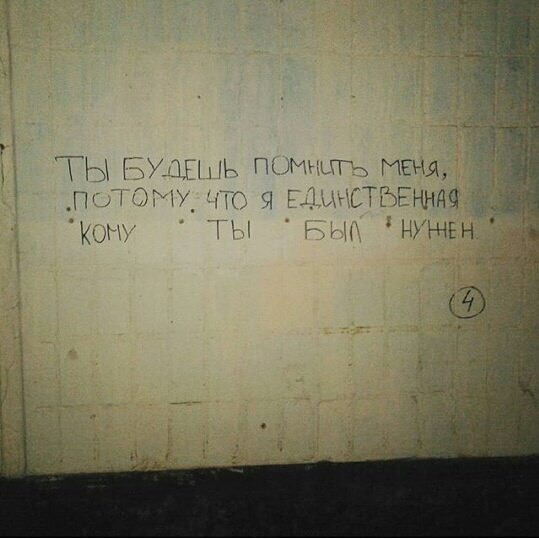 ТЫ БУДЕШЬ ПОМНИТЬ МЕНЯ,
ПОТОМУ ЧТО Я ЕДИНСТВЕННАЯ
КОМУ ТЫ БЫЛ НУЖЕН
4